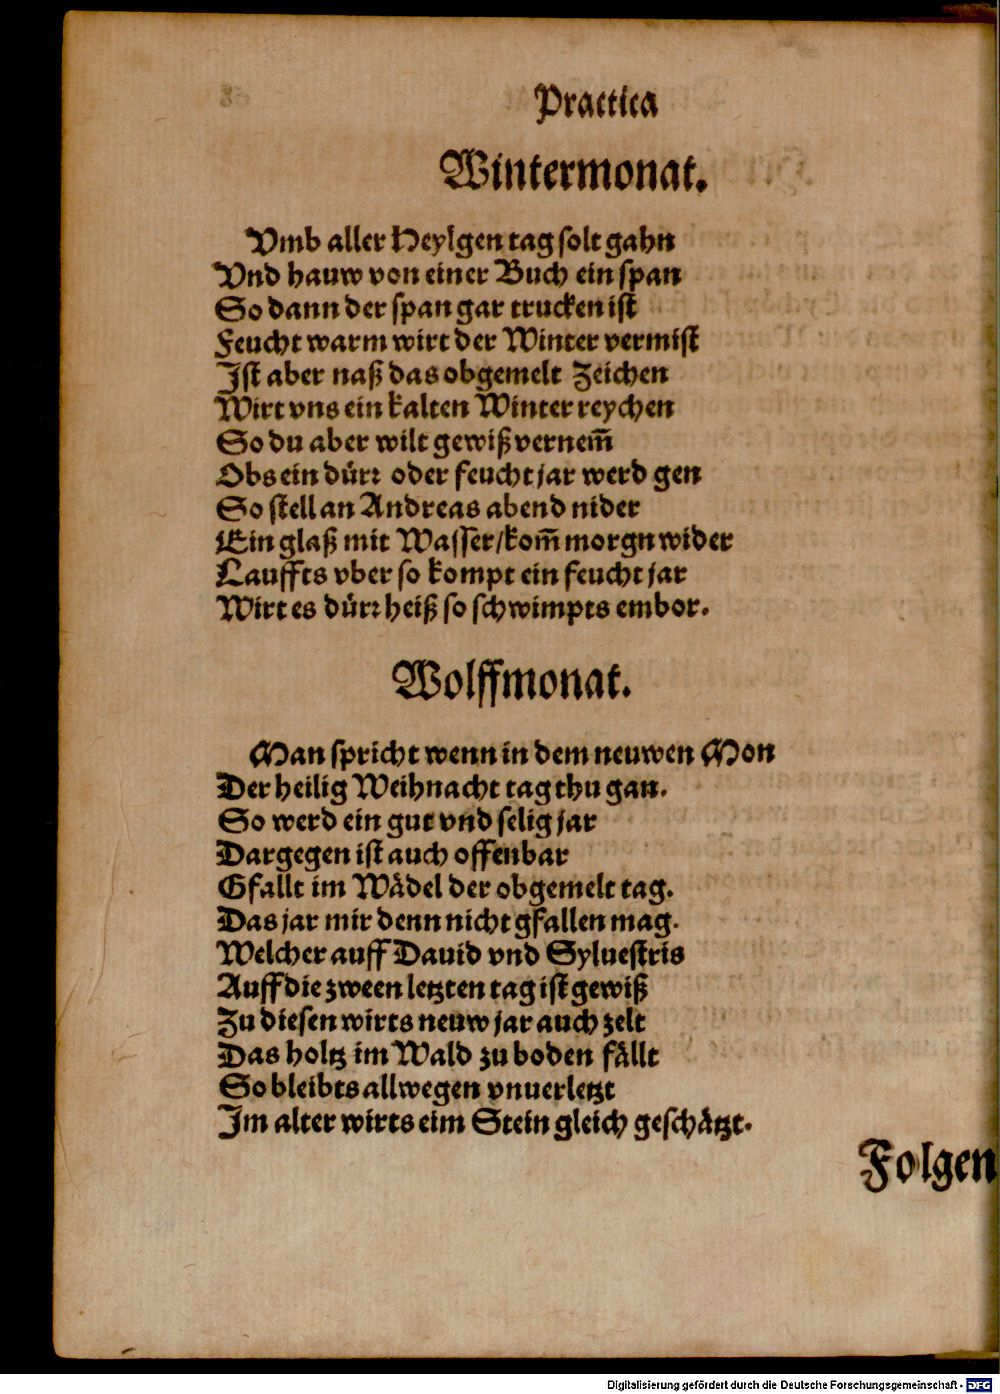 Practica
Wintermonat.
Vmb aller Heylgen tag solt gahn
Vnd hauw von einer Buch ein span
So dann der span gar trucken ist
Feucht warm wirt der Winter vermist
Ist aber naß das obgemelt Zeichen
Wirt vns ein kalten Winter reychen
So du aber wilt gewiß vernem̃
Obs ein dürꝛ oder feucht jar werd gen
So stell an Andreas abend nider
Ein glaß mit Wasser/kom̃ morgn wider
Laufft​s vber so kompt ein feucht jar
Wirt es dürꝛ heiß so schwimpts embor.
Wolffmonat.
Man spricht wenn in dem neuwen Mon
Der heilig Weihnacht tag thu gan.
So werd ein gut vnd selig jar
Dargegen ist auch offenbar
Gfallt im Wädel der obgemelt tag.
Das jar mir denn nicht gfallen mag.
Welcher auff Dauid vnd Syluestris
Auff die zween letzten tag ist gewiß
Zu diesen wirts neuw jar auch zelt
Das holtz im Wald zu boden fällt
So bleibts allwegen vnuerletzt
Im alter wirts eim Stein gleich geschätzt.
Folgen
Digitalisierung gefördert durch die Deutsche Forschungsgemeinschaft - DFG